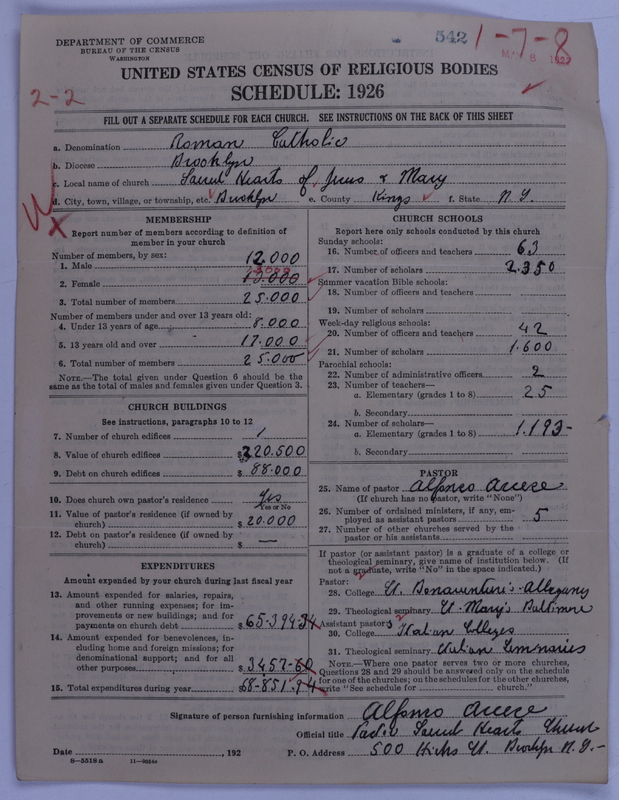 DEPARTMENT OF COMMERCE
BUREAU OF THE CENSUS
WASHINGTON
542 1-7-8
UNITED STATES CENSUS OF RELIGIOUS BODIES
SCHEDULE: 1926
2-2
FILL OUT A SEPARATE SCHEDULE FOR EACH CHURCH. SEE INSTRUCTIONS ON THE BACK OF THIS SHEET
a. Denomination Roman Catholic
b. Diocese Brooklyn
c. Local name of church Sacred Hearts of Jesus & Mary
d. City, town, village, or township, etc. Brooklyn e. County Kings f. State N. Y.
MEMBERSHIP
Report number of members according to definition of
member in your church
Number of members, by sex:
1. Male 12,000
13000
2. Female 13.000
3. Total number of members 25.000
Number of members under and over 13 years old:
4. Under 13 years of age 8.000
5. 13 years old and over 17.000
6. Total number of members 25.000
NOTE.—The total given under Question 6 should be the
same as the total of males and females given under Question 3.
CHURCH BUILDINGS
See instructions, paragraphs 10 to 12
7. Number of church edifices 1
8. Value of church edifices $220.500
9. Debt on church edifices $88.000
10. Does church own pastor's residence Yes
Yes or No
11. Value of pastor's residence (if owned by
church) $20.000
12. Debt on pastor's residence (if owned by
church) $ —
EXPENDITURES
Amount expended by your church during last fiscal year
13. Amount expended for salaries, repairs,
and other running expenses; for im-
provements or new buildings; and for
payments on church debt $65.394 34
14. Amount expended for benevolences, in-
cluding home and foreign missions; for
denominational support; and for all
other purposes $3457-60
15. Total expenditures during year $68-851.94
CHURCH SCHOOLS
Report here only schools conducted by this church
Sunday schools:
16. Number of officers and teachers 63
17. Number of scholars 2.350
Summer vacation Bible schools:
18. Number of officers and teachers
19. Number of scholars
Week-day religious schools:
20. Number of officers and teachers 42
21. Number of scholars 1.600
Parochial schools:
22. Number of administrative officers 2
23. Number of teachers—
a. Elementary (grades 1 to 8) 25
b. Secondary
24. Number of scholars—
a. Elementary (grades 1 to 8) 1.193-
b. Secondary
PASTOR
25. Name of pastor Alfonso Arcese
(If church has no pastor, write "None")
26. Number of ordained ministers, if any, em-
ployed as assistant pastors 5
27. Number of other churches served by the
pastor or his assistants
If pastor (or assistant pastor) is a graduate of a college or
theological seminary, give name of institution below. (If
not a graduate, write "No" in the space indicated.)
Pastor:
28. College St. Bonaventure's-Allegany
29. Theological seminary St. Mary's Baltimore
Assistant pastor:
30. College Italian Colleges
31. Theological seminary Italian Seminaries
NOTE.—Where one pastor serves two or more churches,
Questions 28 and 29 should be answered only on the schedule
for one of the churches; on the schedules for the other churches,
write "See schedule for church."
Signature of person furnishing information Alfonso Arcese
Official title Pastor Sacred Hearts Church
Date , 192 P. O. Address 500 Hicks St. Brooklyn N.Y.-
8—5518 a